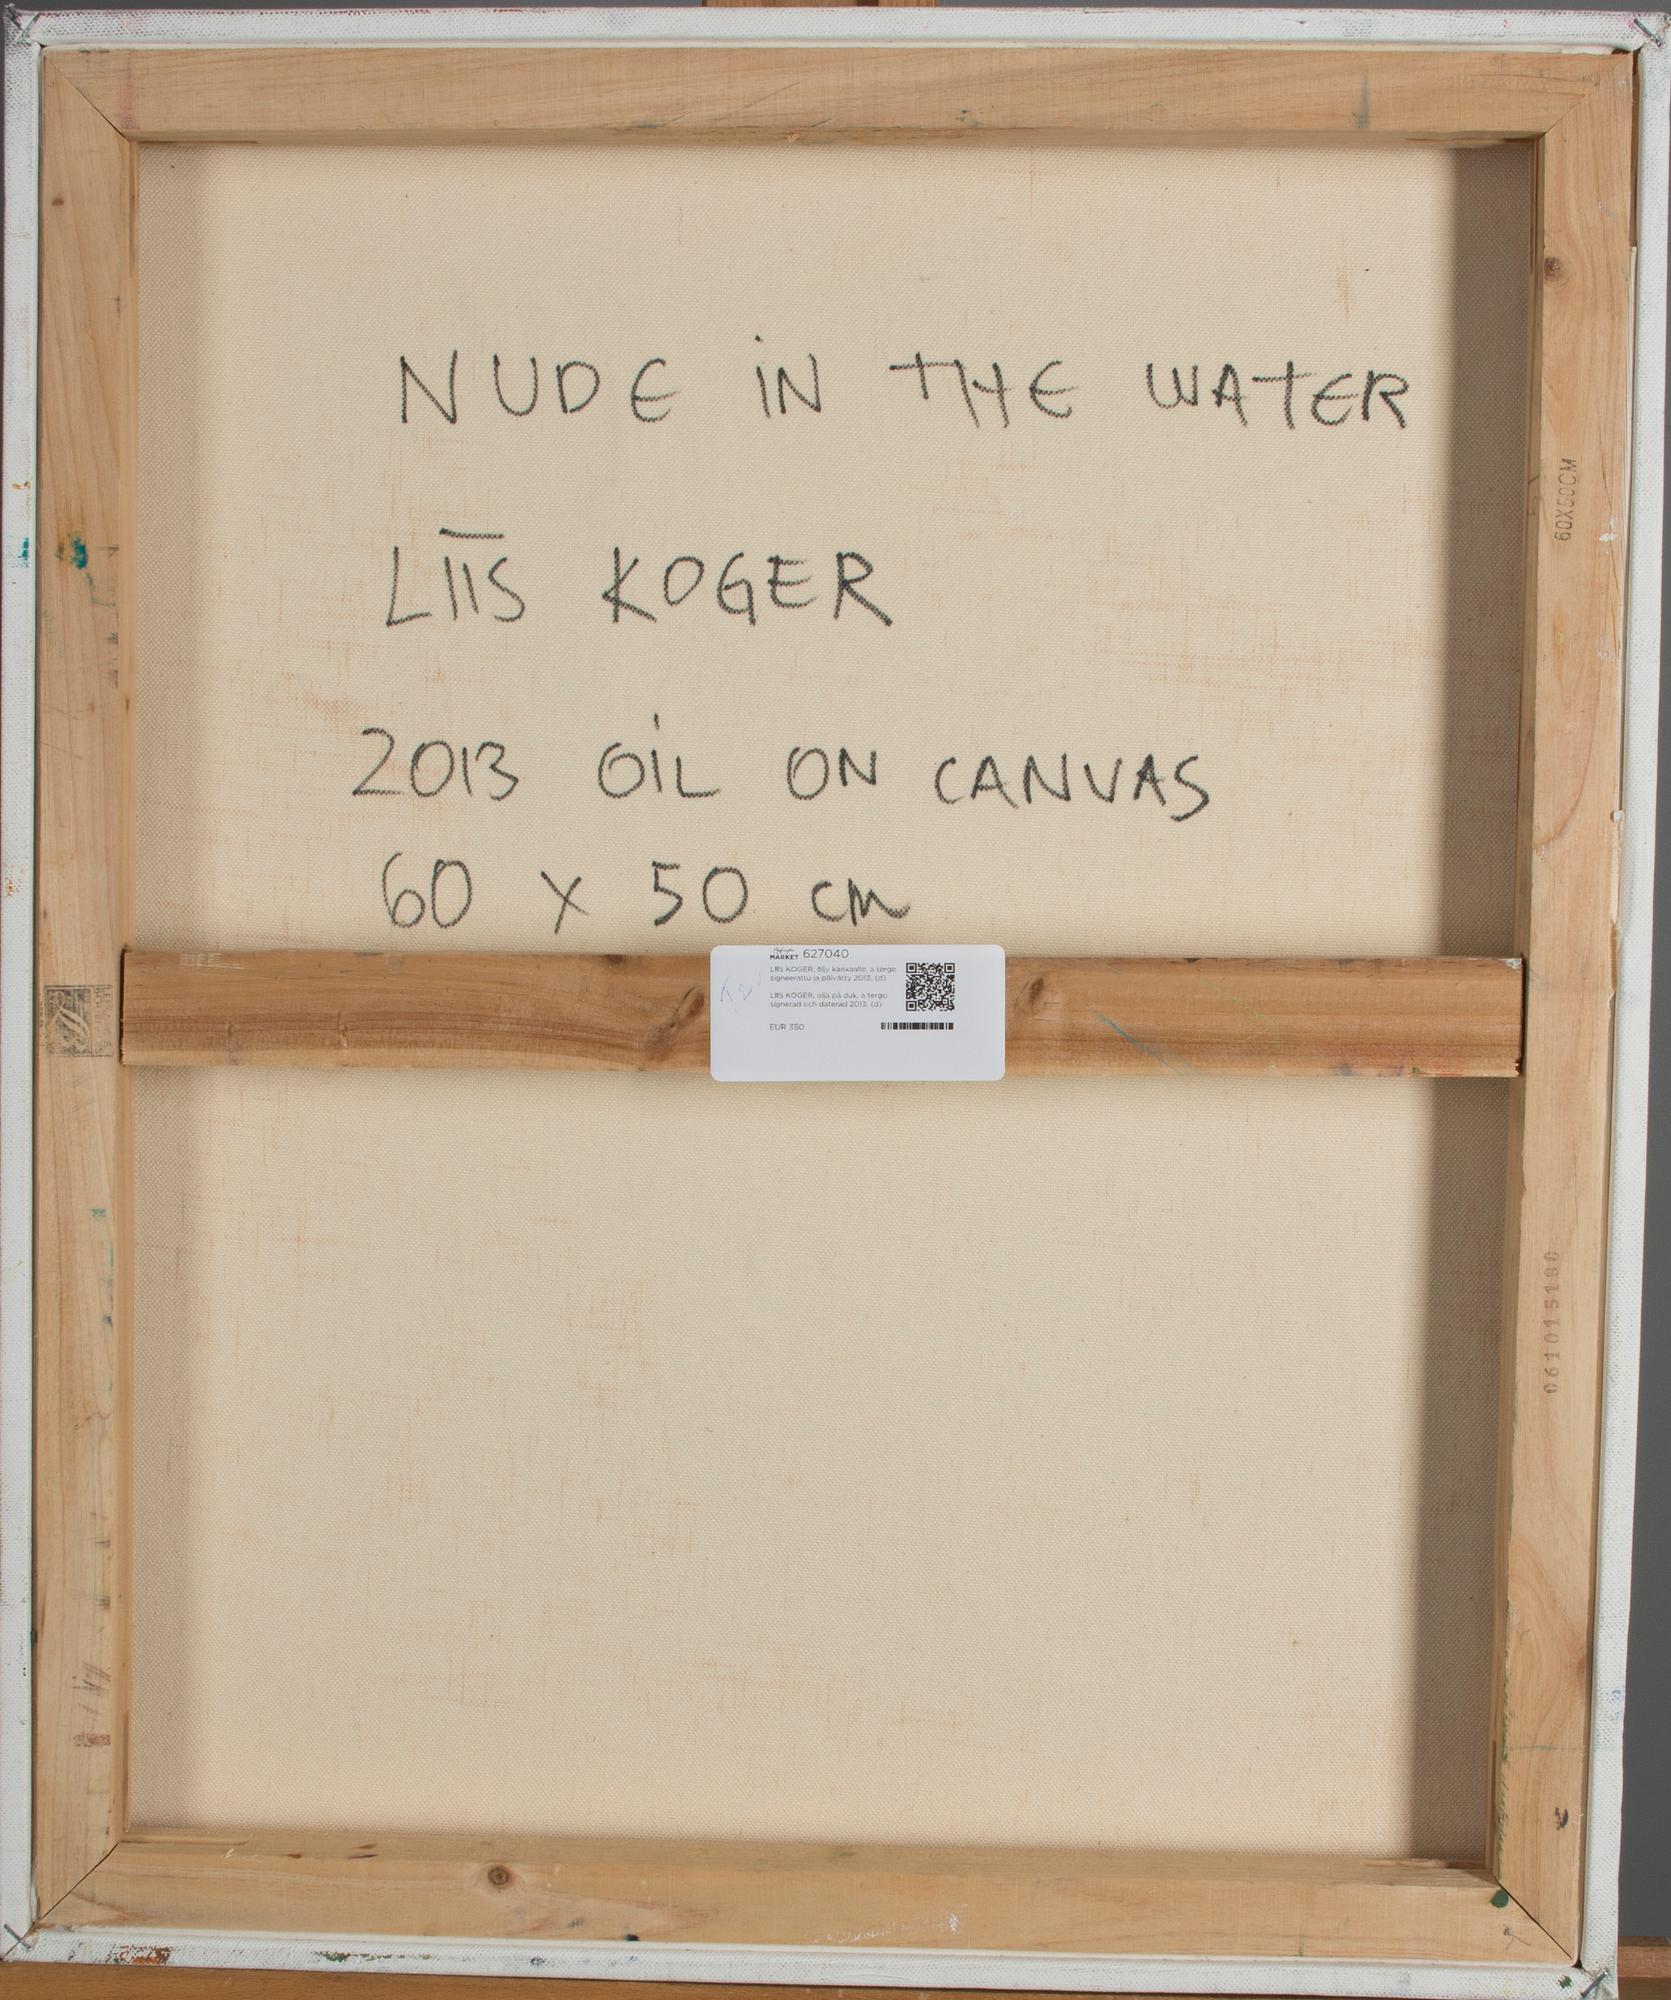 NUDE iN THE WATER
LIIS KOGER
2013 OiL ON CANVAS
60 x 50 cm
MARKET 627040
LIIS KOGER, öljy kankaalle, a tergo
signeerattu ja päivätty 2013. (d)
LIIS KOGER, olja på duk, a tergo
signerad och daterad 2013. (d)
EUR 350
60X50CM
061015180